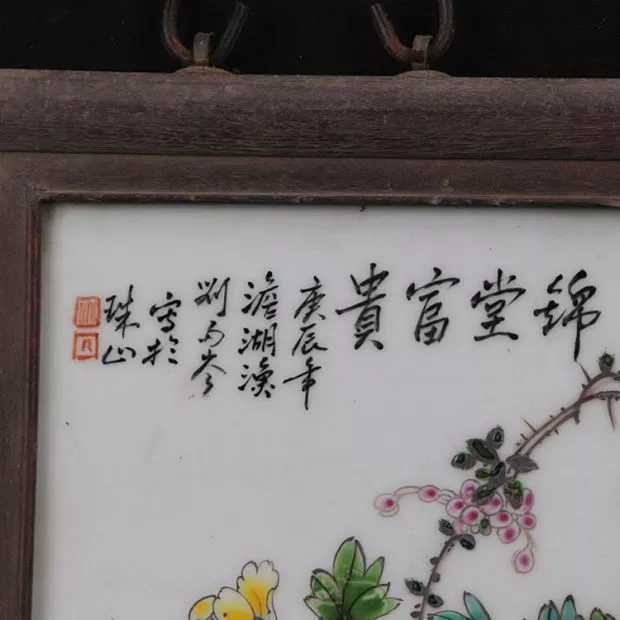 錦堂富貴
庚辰年
澹湖漁
刘雨岑
寫於
珠山